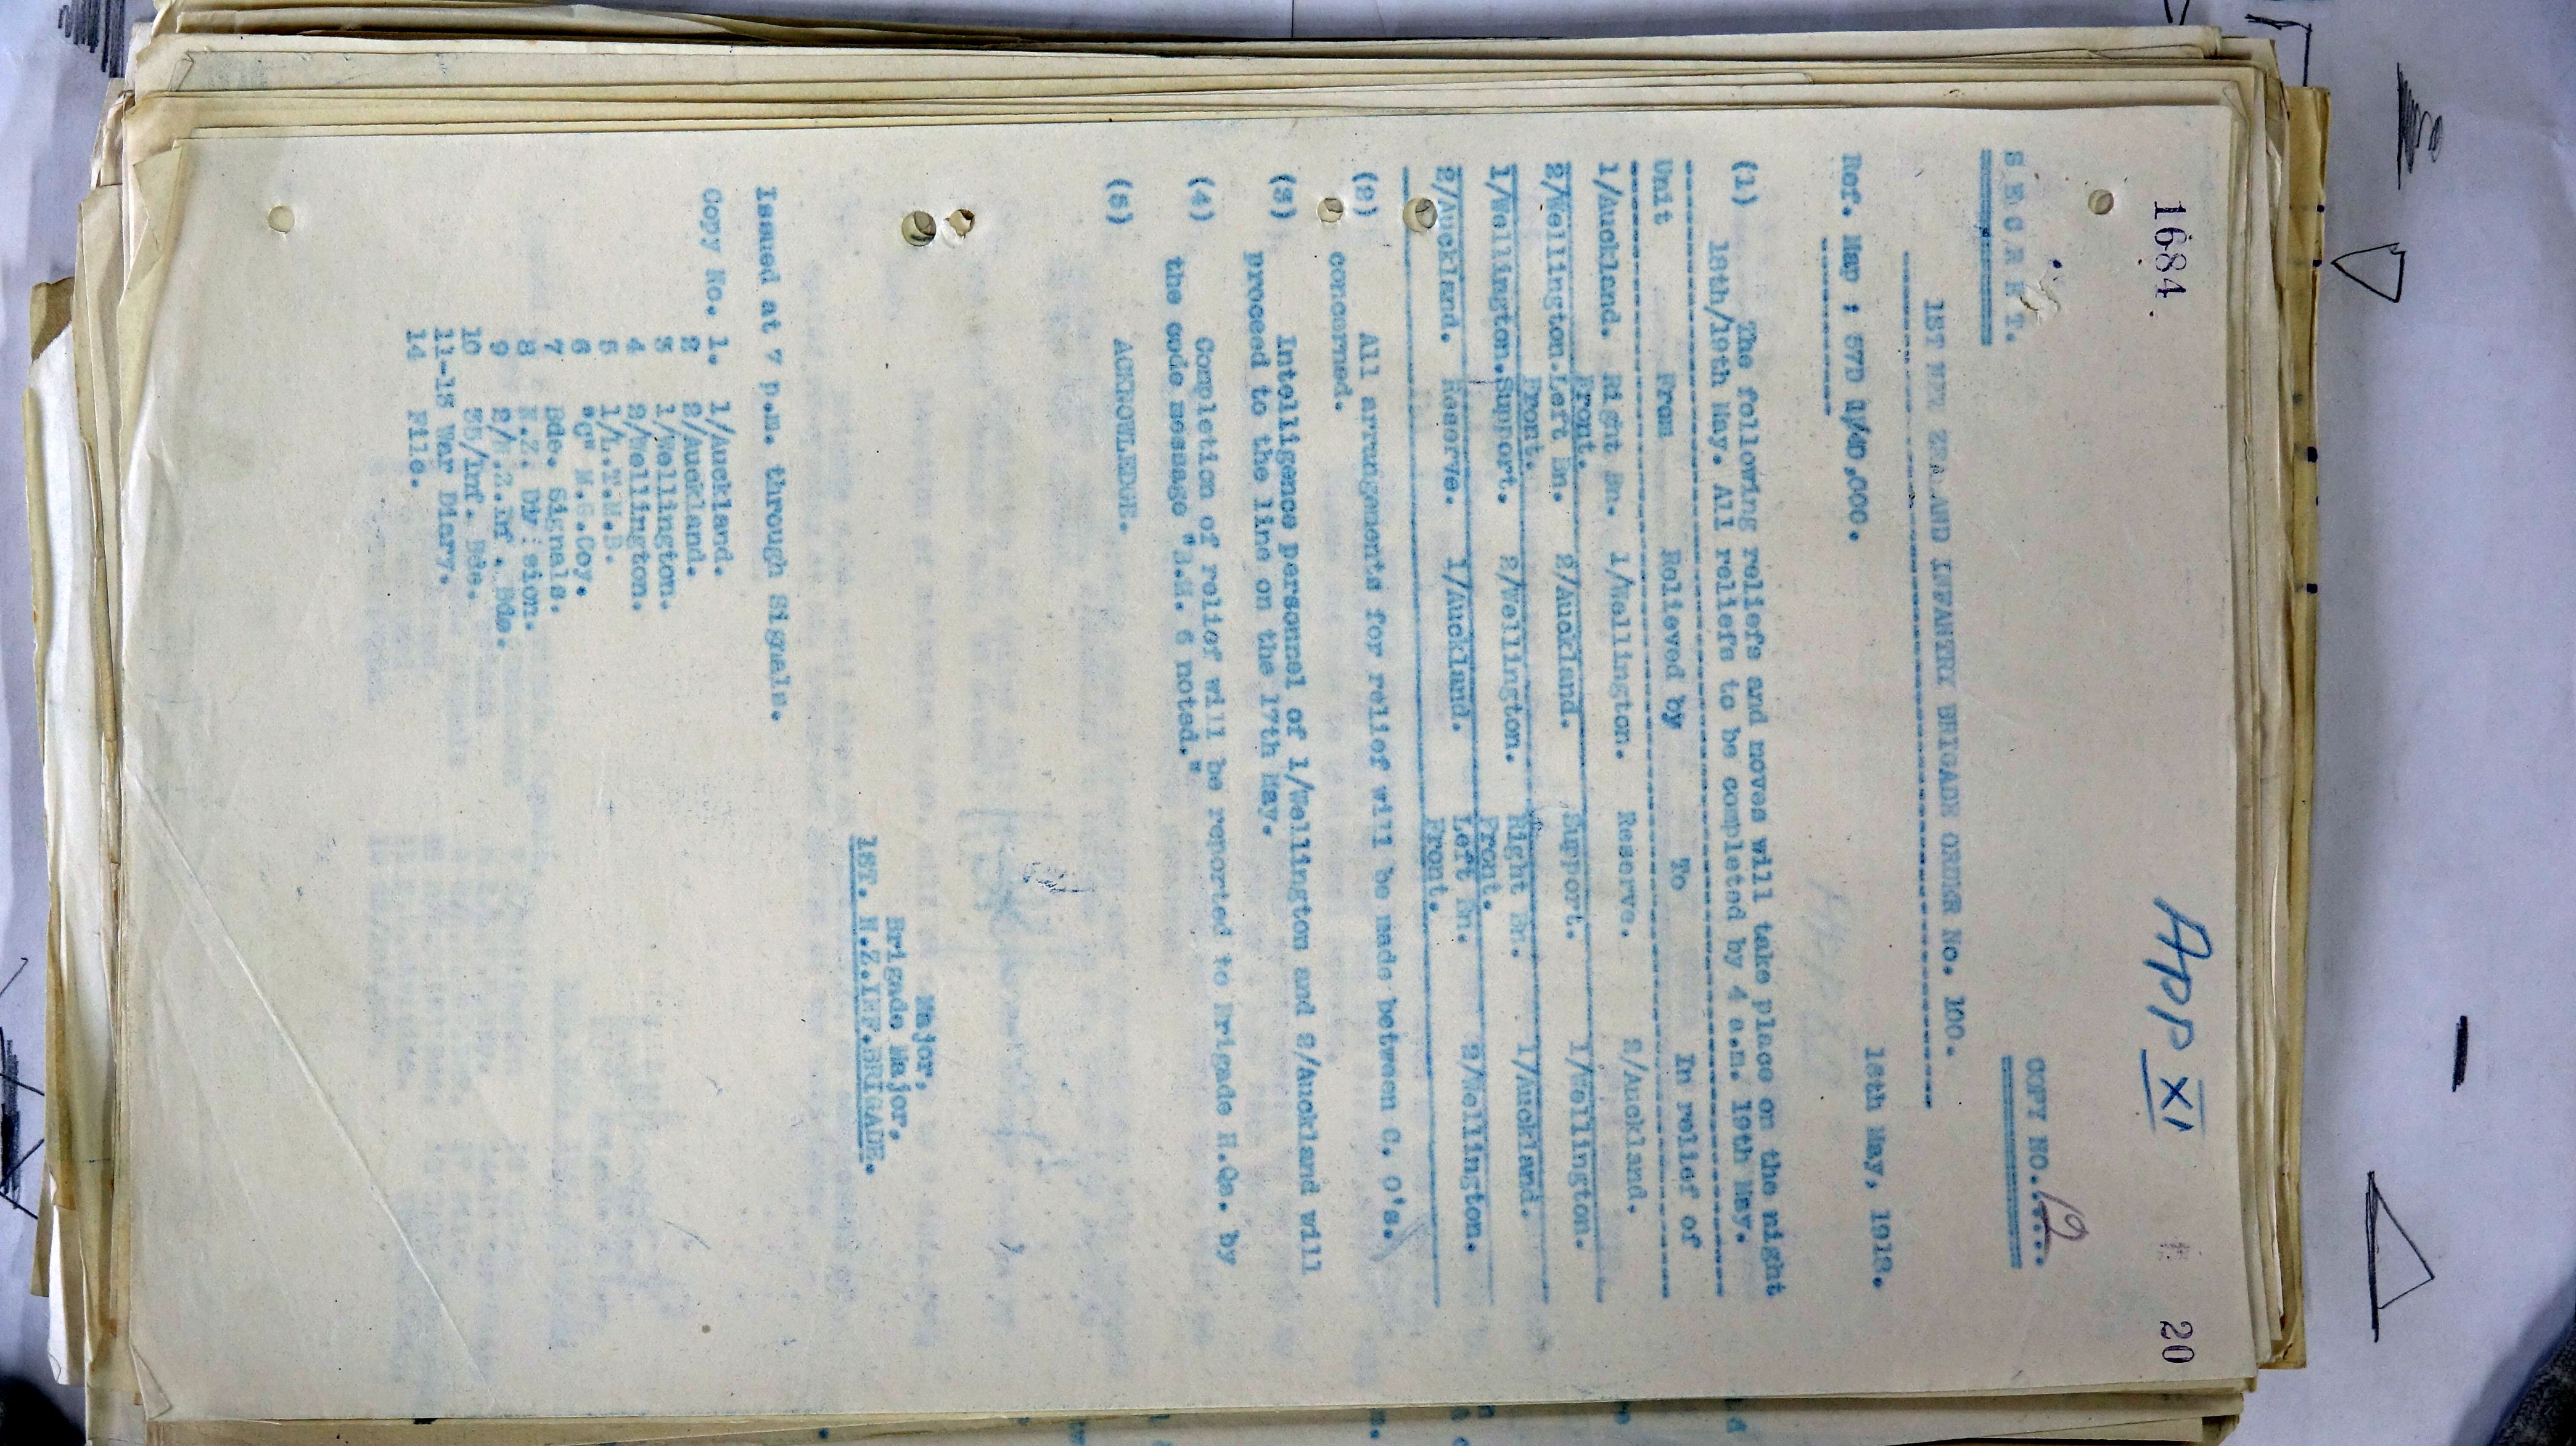 1684
App XI
20
S E C R E T.
COPY NO. 12
1ST NEW ZEALAND INFANTRY BRIGADE ORDER No. 100.
Ref. Map : 57D 1/40,000.
May, 1918.
(1) The following reliefs and moves will take place on the night
18th/19th May. All reliefs to be completed by 4 a.m. 19th May.
Unit From Relieved by To In relief of
1/Auckland. Right Bn. Front. 1/Wellington. Reserve. 2/Auckland.
2/Wellington. Left Bn. Front. 2/Auckland. Support. 1/Wellington.
1/Wellington. Support. 2/Wellington. Right Bn. Front. 1/Auckland.
2/Auckland. Reserve. 1/Auckland. Left Bn. Front. 2/Wellington.
(2) All arrangements for relief will be made between C. O's.
concerned.
(3) Intelligence personnel of 1/Wellington and 2/Auckland will
proceed to the line on the 17th May.
(4) Completion of relief will be reported to Brigade H.Qs. by
the code message "B.M. 6 noted."
(5) ACKNOWLEDGE.
Major,
Brigade Major,
1ST. N.Z.INF.BRIGADE.
Issued at 7 p.m. through Signals.
Copy No. 1. 1/Auckland.
2 2/Auckland.
3 1/Wellington.
4 2/Wellington.
5 1/L.T.M.B.
6 "C" M.G.Coy.
7 Bde. Signals.
8 N.Z. Division.
9 2/N.Z.Inf. Bde.
10 Inf. Bde.
11-13 War Diary.
14 File.